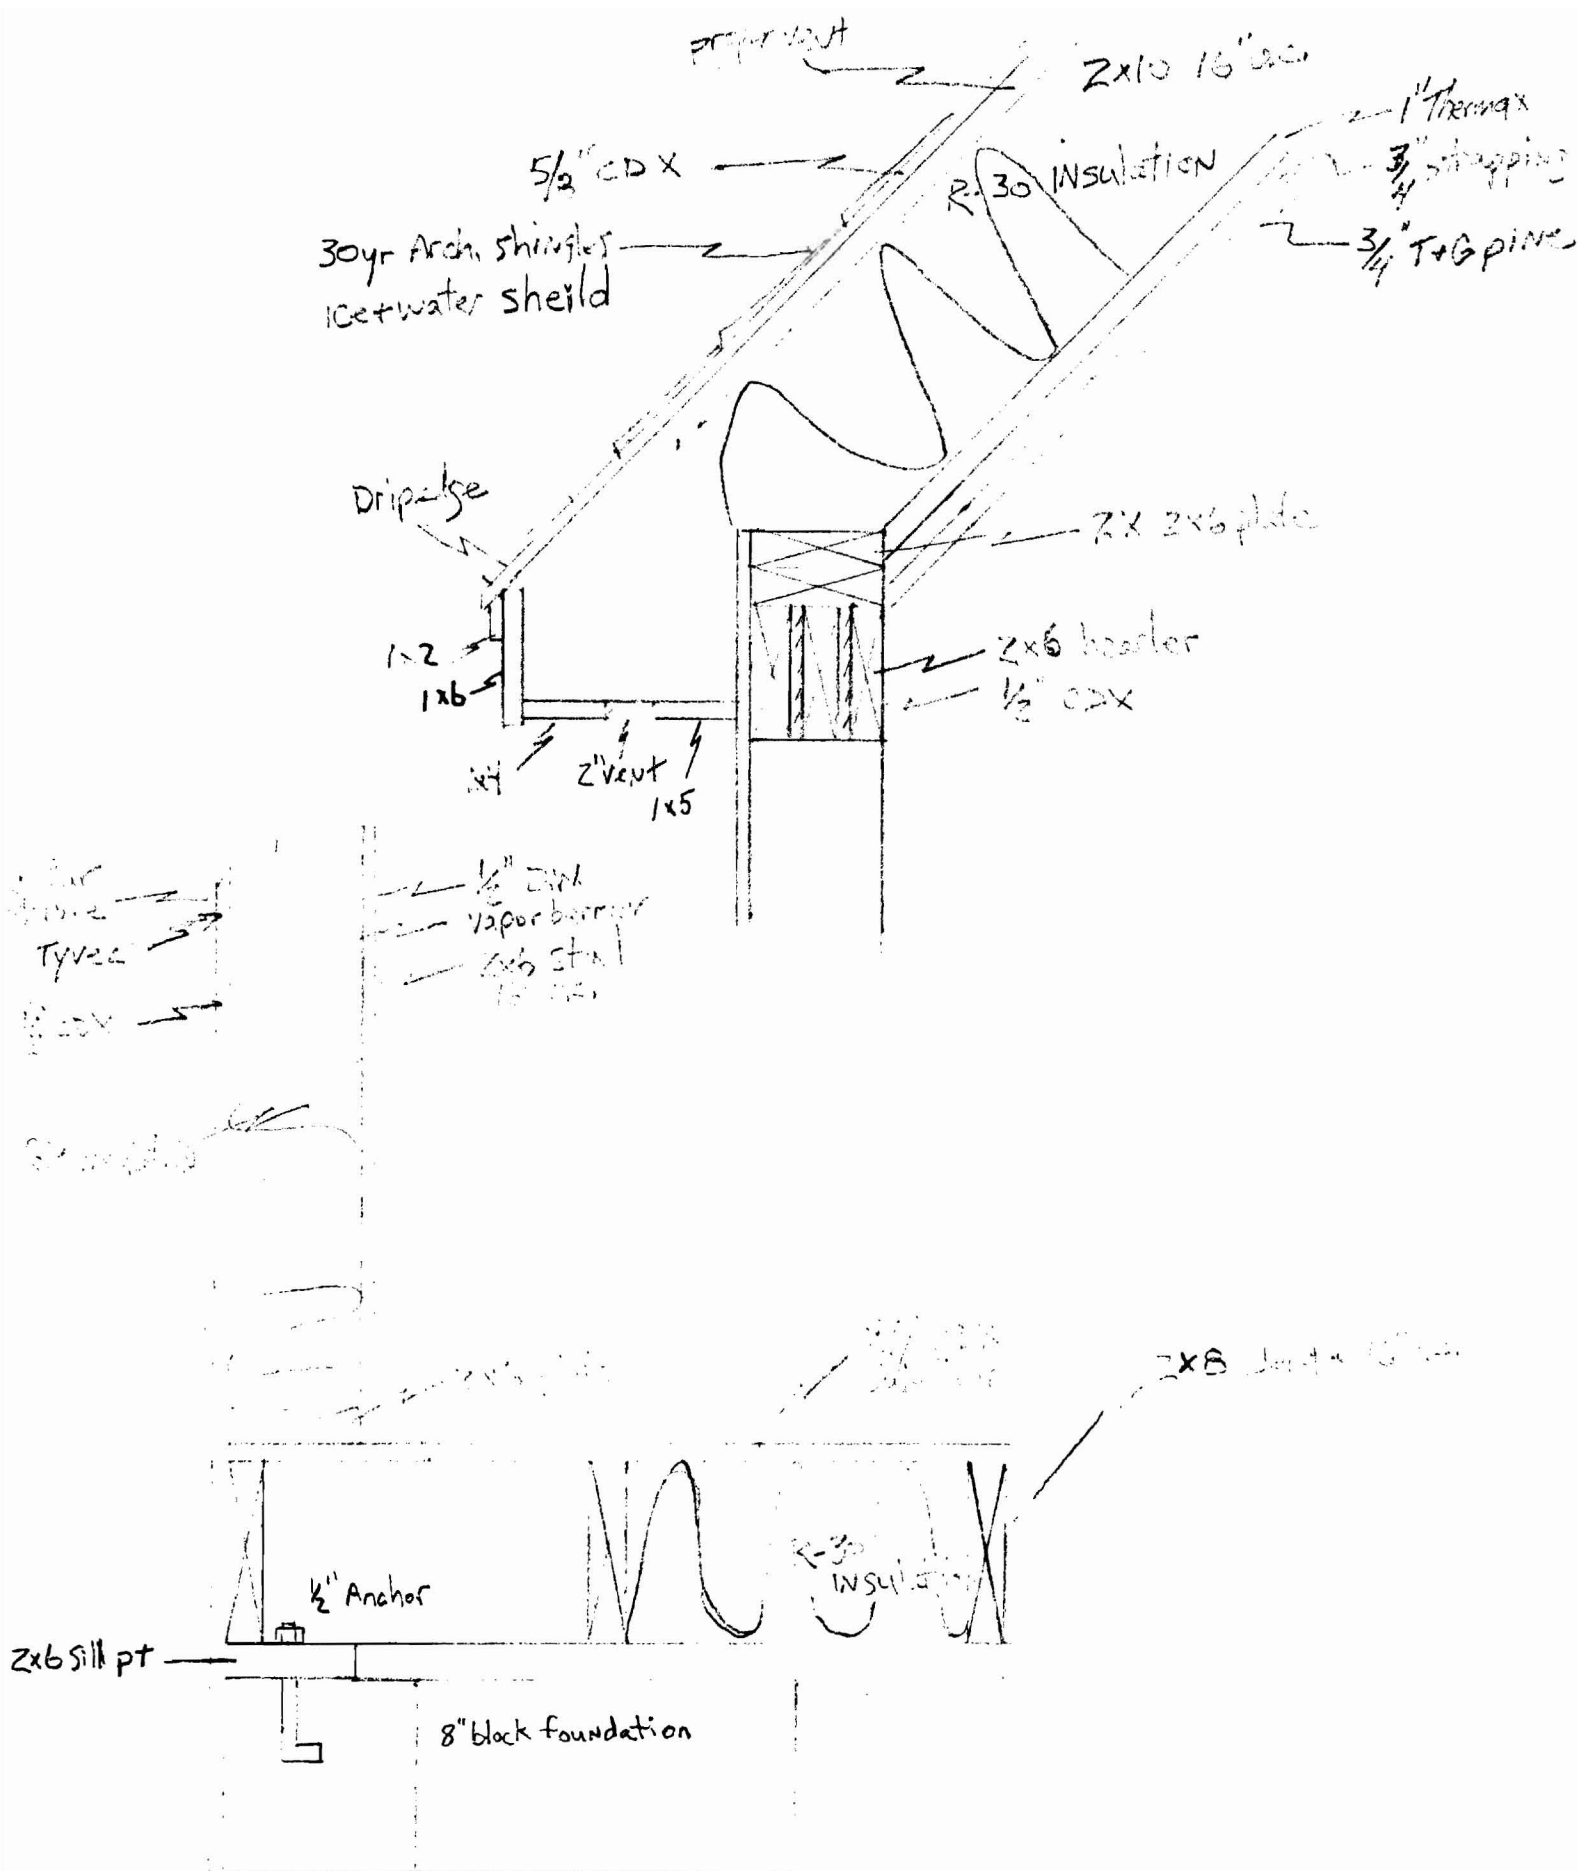 propervent
2x10 16" o.c.
1" Thermax
3/4" strapping
3/4" T+G pine
5/2" CDX
R-30 INSULATION
30yr Arch. shingles
ice+water sheild
Dripedge
2x 2x6 plate
1x2
1x6
2x6 header
1/2" CDX
1x4
2" vent
1x5
1/2" DW
vapor barrier
2x6 Stud
Tyvec
CDX
2x8
R-30
INSULATION
1/2" Anchor
2x6 Sill pt
8" block foundation